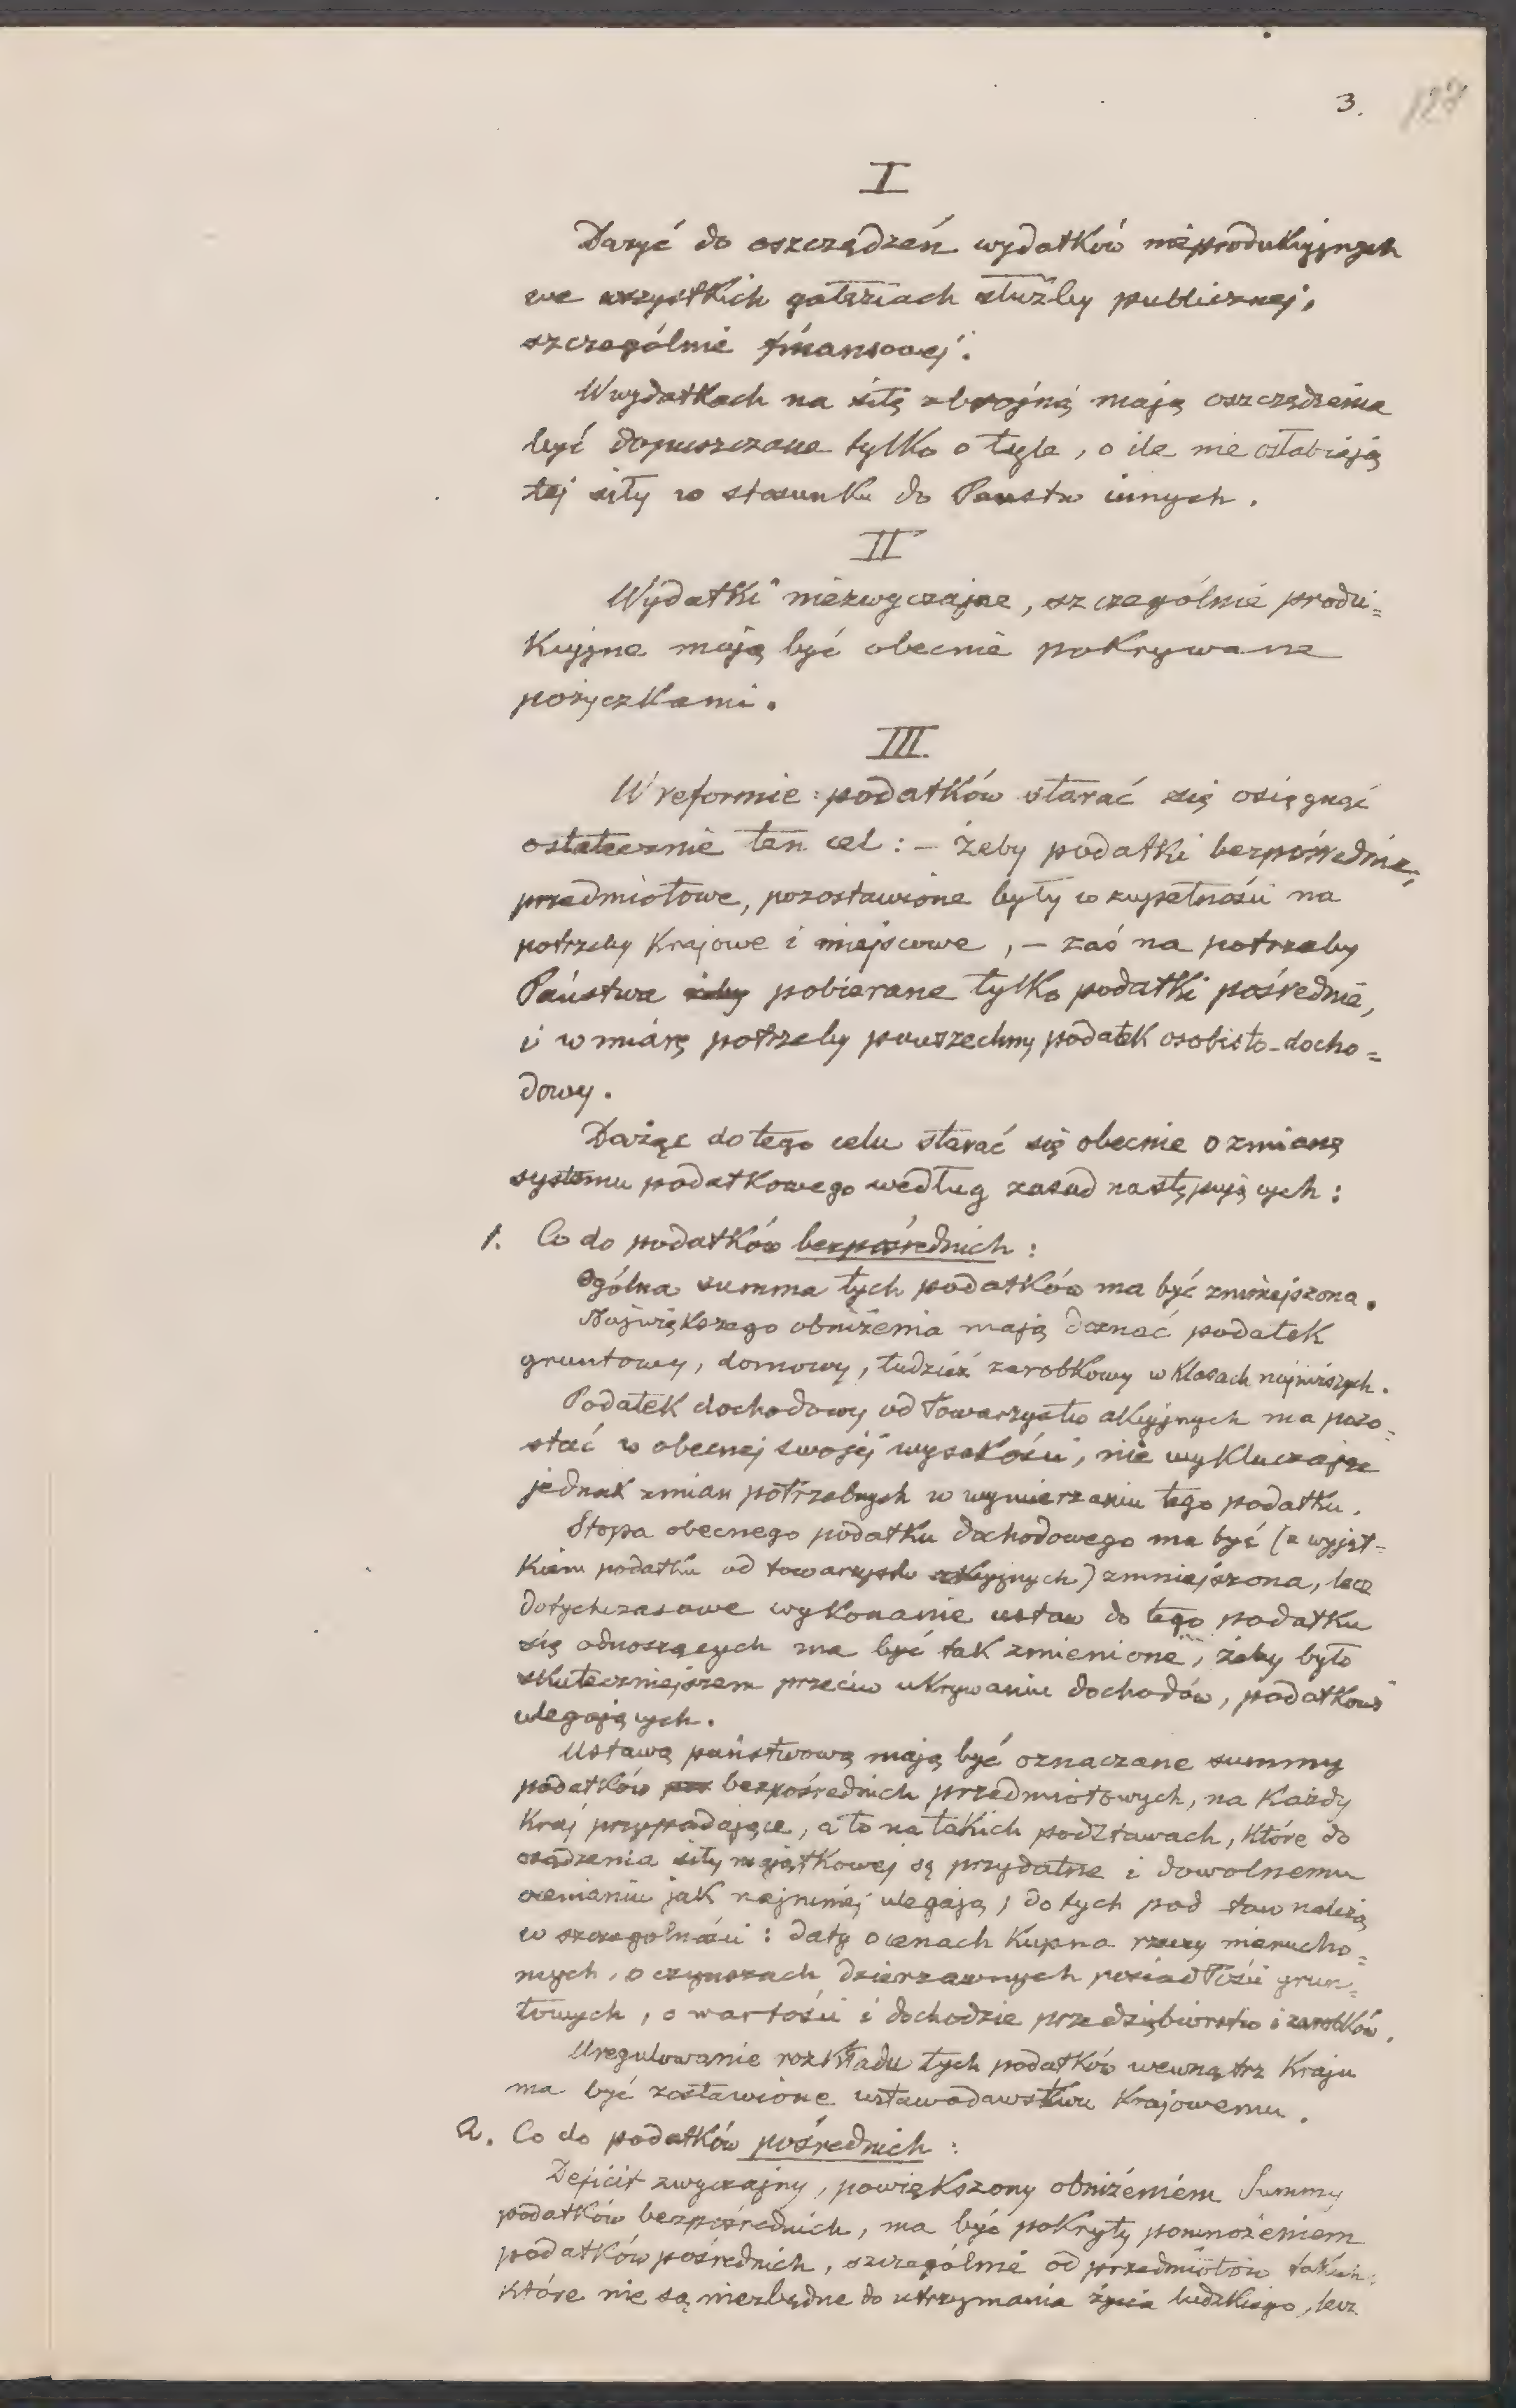 3. 127
I
Dązyć do oszczędzeń wydatków nieprodukcyjnych
we wszystkich gałęziach służby publicznej,
szczególnie finansowej.
W wydatkach na siłę zbrojną mają oszczędzenia
być dopuszczane tylko o tyle, o ile nie osłabiają
tej siły w stosunku do Państw innych.
II
Wydatki niezwyczajne, szczególnie produ=
kcyjne mają być obecnie pokrywane
pożyczkami.
III.
W reformie podatków starać się osięgnąć
ostatecznie ten cel: – żeby podatki bezpośrednie,
przedmiotowe, pozostawione były w zupełności na
potrzeby Krajowe i miejscowe, – zaś na potrzeby
Państwa żeby pobierane tylko podatki pośrednie,
i w miarę potrzeby powszechny podatek osobisto-docho=
dowy.
Dążąc do tego celu starać się obecnie o zmianę
systemu podatkowego według zasad następujących:
1. Co do podatków bezpośrednich:
Ogólna summa tych podatków ma być zmniejszona.
Największego obniżenia mają doznać podatek
gruntowy, domowy, tudzież zarobkowy w klasach najniższych.
Podatek dochodowy od Towarzystw akcyjnych ma pozo=
stać w obecnej swojej wysokości, nie wykluczając
jednak zmian potrzebnych w wymierzaniu tego podatku.
Stopa obecnego podatku dochodowego ma być (z wyjąt=
kiem podatku od towarzystw akcyjnych) zmniejszona, lecz
dotychczasowe wykonanie ustaw do tego podatku
się odnoszących ma być tak zmienione, żeby było
skuteczniejszem przeciw ukrywaniu dochodów, podatkowi
ulegających.
Ustawą państwową mają być oznaczane summy
podatków bezpośrednich przedmiotowych, na każdy
Kraj przypadające, a to na takich podstawach, które do
osądzenia siły majątkowej są przydatne i dowolnemu
ocenianiu jak najmniej ulegają; do tych podstaw należą
w szczególności: daty o cenach kupna rzeczy nierucho=
mych, o czynszach dzierzawnych posiadłości grun=
towych, o wartości i dochodzie przedsiębiorstw i zarobków.
Uregulowanie rozkładu tych podatków wewnątrz Kraju
ma być zostawione ustawodawstwu Krajowemu.
2. Co do podatków pośrednich:
Deficit zwyczajny, powiększony obniżeniem Summy
podatków bezpośrednich, ma być pokryty pomnożeniem
podatków pośrednich, szczególnie od przedmiotów takich,
które nie są niezbędne do utrzymania życia ludzkiego, lecz